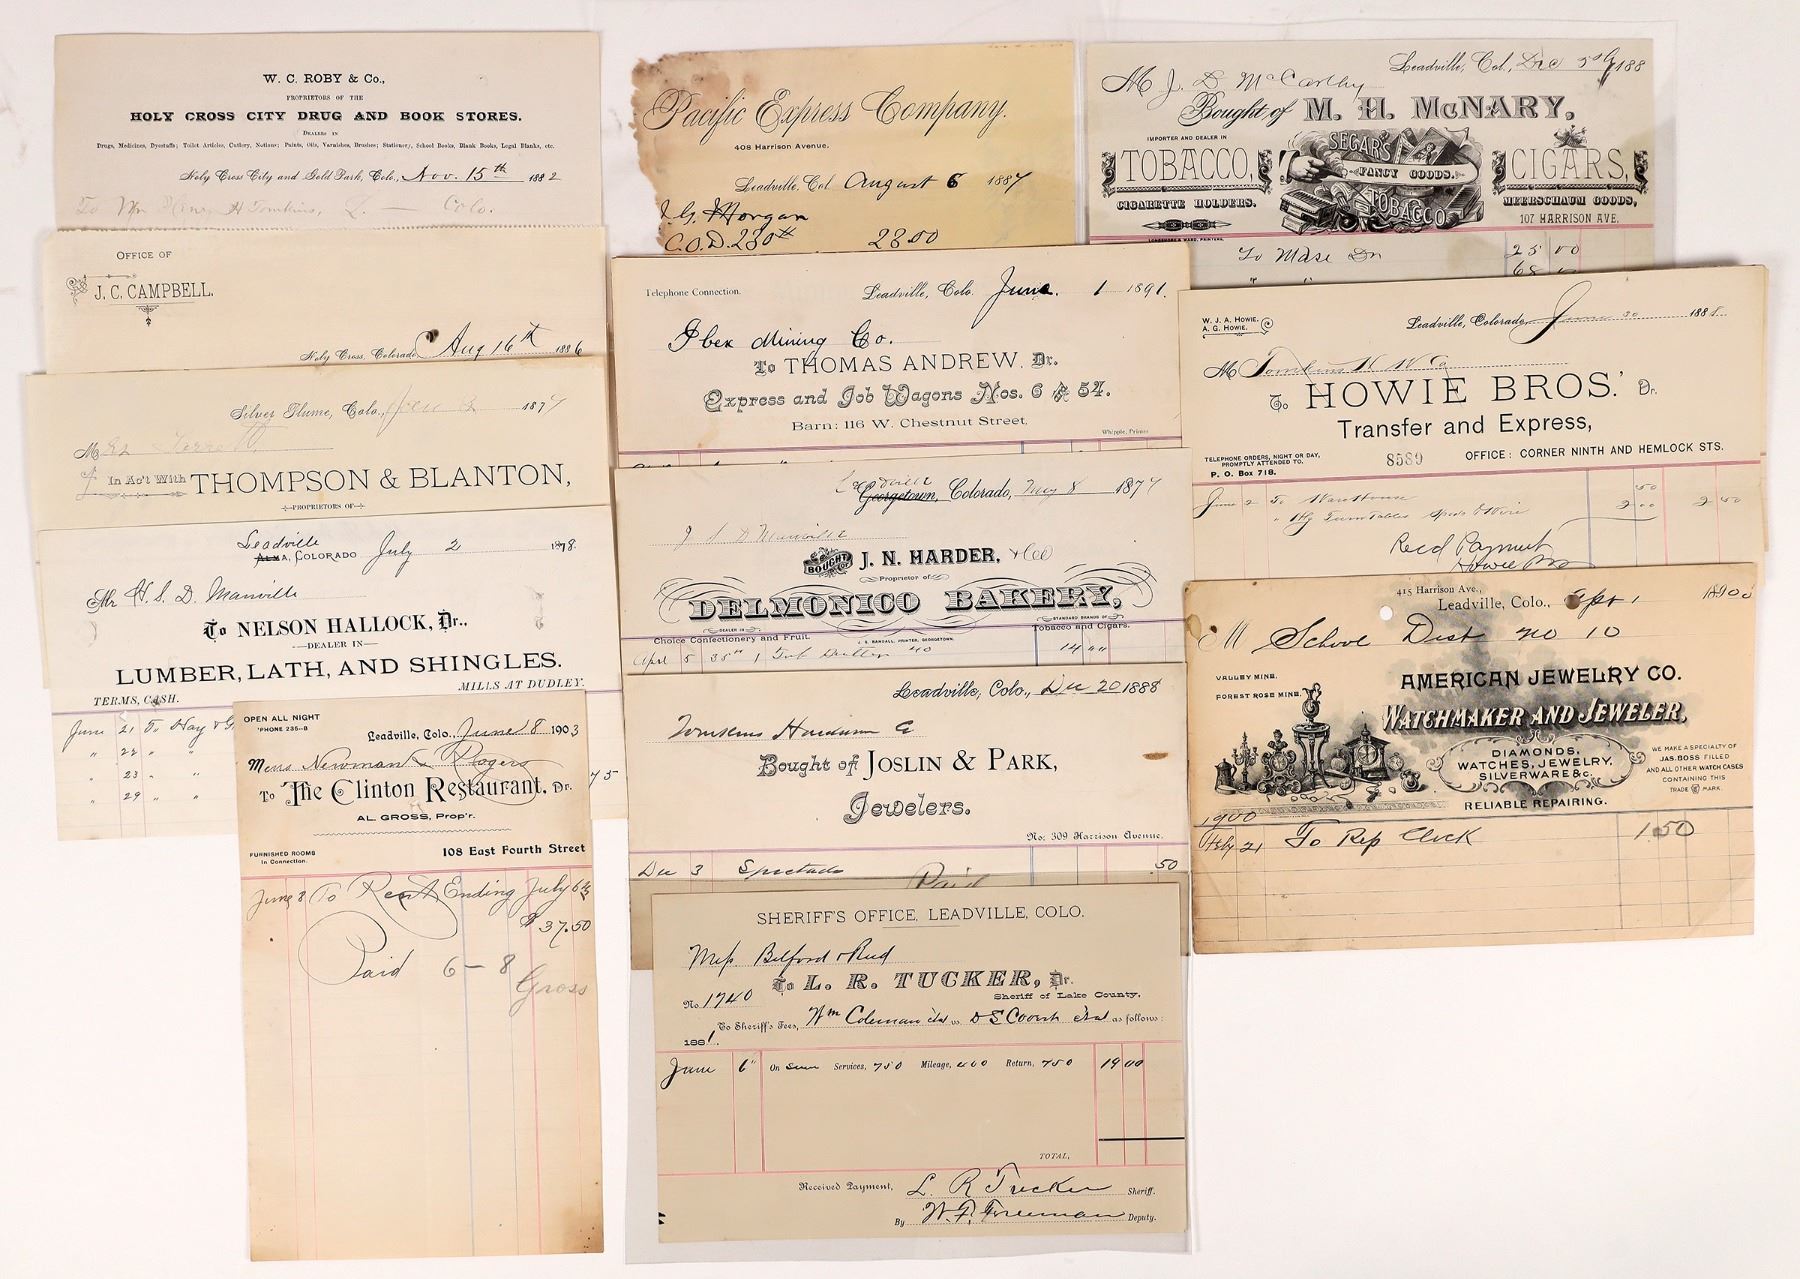 W. C. ROBY & Co.,
PROPRIETORS OF THE
HOLY CROSS CITY DRUG AND BOOK STORES.
DEALERS IN
Drugs, Medicines, Dyestuffs; Toilet Articles, Cutlery, Notions; Paints, Oils, Varnishes, Brushes; Stationery, School Books, Blank Books, Legal Blanks, etc.
Holy Cross City and Gold Park, Colo., Nov. 15th 1882
Tomkins, Colo.
OFFICE OF
J. C. CAMPBELL.
Holy Cross, Colorado Aug 16th 1886
Silver Plume, Colo., 187
M
In Ac't With THOMPSON & BLANTON,
PROPRIETORS OF
Leadville
ALMA, COLORADO July 2 1878.
Mr H. S. D. Manville
To NELSON HALLOCK, Dr.,
DEALER IN
LUMBER, LATH, AND SHINGLES.
TERMS, CASH. MILLS AT DUDLEY.
June 21 To Hay &
" 22 " "
" 23 " "
" 29 " "
75
OPEN ALL NIGHT
'PHONE 235-B
Leadville, Colo., June 8 1903
Mess Newman & Rogers
To The Clinton Restaurant, Dr.
AL. GROSS, Prop'r.
FURNISHED ROOMS
In Connection.
108 East Fourth Street
June 8 To Rent Ending July 6th
$37.50
Paid 6-8
Gross
Pacific Express Company.
408 Harrison Avenue.
Leadville, Col August 6 1887
J. G. Morgan
C.O.D. 230 2300
Telephone Connection.
Leadville, Colo. June 1 1891.
Ibex Mining Co.
To THOMAS ANDREW, Dr.
Express and Job Wagons Nos. 6 & 54.
Barn: 116 W. Chestnut Street,
Whipple, Printer
Leadville
Georgetown, Colorado, May 8 187
Manville
BOUGHT OF J. N. HARDER, & Co
Proprietor of
DELMONICO BAKERY,
DEALER IN
Choice Confectionery and Fruit.
J. S. RANDALL, PRINTER, GEORGETOWN.
STANDARD BRANDS OF
Tobacco and Cigars.
Apl 5 35 1 Tub Butter 40 14
Leadville, Colo., Dec 20 1888
Tomkins Hardware Co
Bought of JOSLIN & PARK,
Jewelers.
No: 309 Harrison Avenue.
Dec 3 Spectacles .50
Paid
SHERIFF'S OFFICE, LEADVILLE, COLO.
Mess. Bilford & Reed
To L. R. TUCKER, Dr.
Sheriff of Lake County.
No 1740
To Sheriff's Fees, Wm Coleman etal vs. etal as follows:
1881.
June 6" On Sum Services, 750 Mileage, 400 Return, 750 1900
TOTAL,
Received Payment, L. R. Tucker Sheriff.
By W. F. Freeman Deputy.
Leadville, Col., Dec 188
M J. D. McCarthy
Bought of M. H. McNARY,
IMPORTER AND DEALER IN
TOBACCO,
CIGARETTE HOLDERS.
SEGARS
FANCY GOODS.
TOBACCO
CIGARS,
MEERSCHAUM GOODS,
107 HARRISON AVE.
LONGSHORE & WARD, PRINTERS.
To Mdse Dr 25 00
68
W. J. A. HOWIE.
A. G. HOWIE.
Leadville, Colorado, June 30 1888.
M Tomkins H W Co
To HOWIE BROS.' Dr.
Transfer and Express,
TELEPHONE ORDERS, NIGHT OR DAY,
PROMPTLY ATTENDED TO.
P. O. Box 718.
8589
OFFICE: CORNER NINTH AND HEMLOCK STS.
June 2 To Warehouse 50
2 00 2 50
Recd Payment
Howie Bros
415 Harrison Ave.,
Leadville, Colo., Apr 1 1900
M School Dist no 10
VALLEY MINE.
FOREST ROSE MINE.
AMERICAN JEWELRY CO.
WATCHMAKER AND JEWELER,
DIAMONDS,
WATCHES, JEWELRY,
SILVERWARE &c.
WE MAKE A SPECIALTY OF
JAS. BOSS FILLED
AND ALL OTHER WATCH CASES
CONTAINING THIS
TRADE MARK.
RELIABLE REPAIRING.
1900
Feby 21 To Rep Clock 1.50